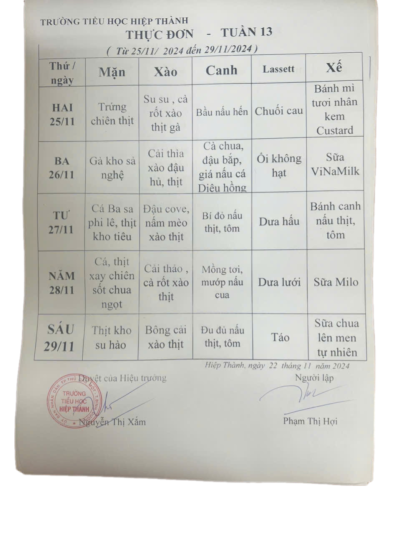 TRƯỜNG TIỂU HỌC HIỆP THÀNH
THỰC ĐƠN - TUẦN 13
( Từ 25/11/ 2024 đến 29/11/2024 )
Thứ / ngày Mặn Xào Canh Lassett Xế
HAI 25/11 Trứng chiên thịt Su su , cà rốt xào thịt gà Bầu nấu hến Chuối cau Bánh mì tươi nhân kem Custard
BA 26/11 Gà kho sả nghệ Cải thìa xào đậu hủ, thịt Cà chua, đậu bắp, giá nấu cá Diêu hồng Ổi không hạt Sữa ViNaMilk
TƯ 27/11 Cá Ba sa phi lê, thịt kho tiêu Đậu cove, nấm mèo xào thịt Bí đỏ nấu thịt, tôm Dưa hấu Bánh canh nấu thịt, tôm
NĂM 28/11 Cá, thịt xay chiên sốt chua ngọt Cải thảo , cà rốt xào thịt Mồng tơi, mướp nấu cua Dưa lưới Sữa Milo
SÁU 29/11 Thịt kho su hào Bông cải xào thịt Đu đủ nấu thịt, tôm Táo Sữa chua lên men tự nhiên
Hiệp Thành, ngày 22 tháng 11 năm 2024
Duyệt của Hiệu trưởng Người lập
TRƯỜNG
TIỂU HỌC
HIỆP THÀNH
Nguyễn Thị Xắm Phạm Thị Hợi